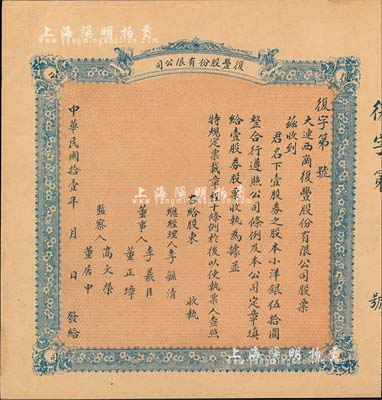 復豐股份有限公司
復字第 號
大連西崗復豐股份有限公司股票
茲收到
君名下壹股券之股本小洋銀伍拾圓
整合行遵照公司條例及本公司定章填
給壹股券股票收執為據並
特規定票載章程十條例於後以便執票人查照
右給股東 收執
總經理人李 清
董事人 李義月
董正璋
監察人 高文榮
董居中
中華民國拾壹年 月 日 發給
復字第 號
上海陽明拍賣
上海陽明拍賣
上海陽明拍賣